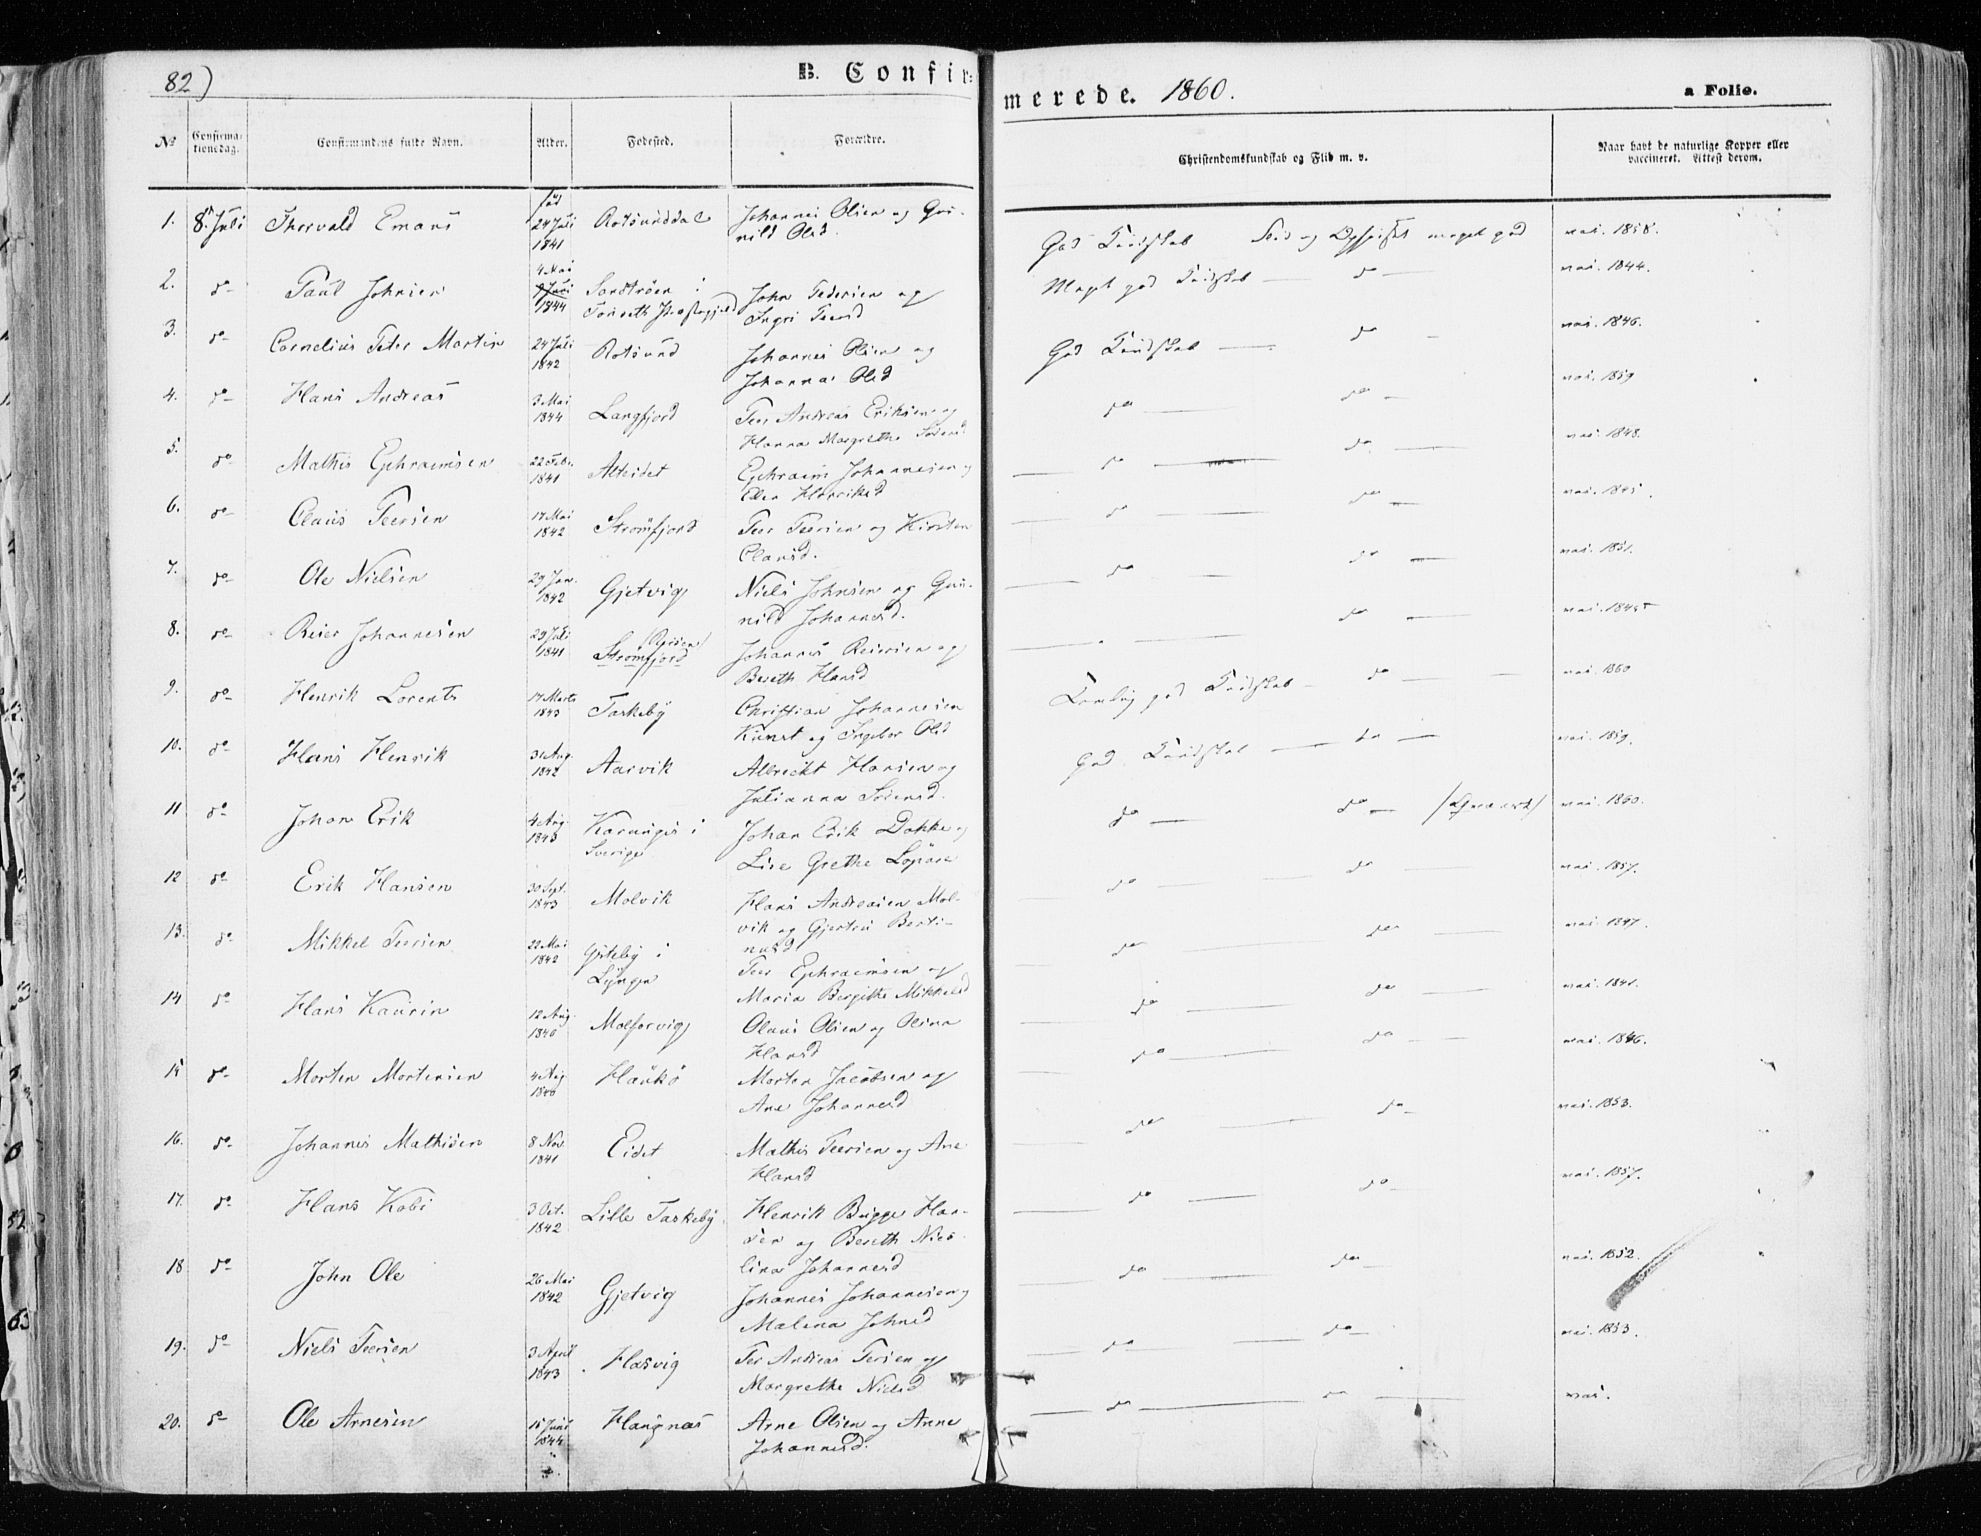 82)
B. Confir-
merede. 1860.
a Folio.
No
Confirma-
tionsdag.
Confirmandens fulde Navn.
Alder.
Fødested.
Forældre.
Christendomskundskab og Flid m. v.
Naar havt de naturlige Kopper eller
vaccineret. Attest derom.
1. 8. Juli Thorvald Emans fød 24 Juli 1841 Rotsunddal Johannes Olsen og Gu-
nild Olsd. God Kundskab Flid og Opførsel meget god vac. 1858.
2. do Paul Johnsen 4 Mai 1844 i John Pedersen og
Ingri Peersd Meget god Kundskab do vac. 1844.
3. do Cornelius Peter Martin 24 Juli 1842 Rotsund Johannes Olsen og
Johanna Olsd God Kundskab do vac. 1846.
4. do Hans Andreas 3 Mai 1844 Langfjord Peer Andreas Eriksen og
Hanna Margrethe do do vac. 1859
5. do Mathis Ephraimsen 22 Feb. 1841 Alteidet Ephraim Johannesen og
Ellen Henriksd do do vac. 1848.
6. do Claus Peersen 17 Mai 1842 Strømfjord Peer Peersen og Kirsten
Clausd. do do vac. 1845.
7. do Ole Nielsen 29 Jan. 1842 Gjetvig Niels Johnsen og Gu-
nild Johannesd. do do vac. 1851.
8. do Reier Johannesen 29 Juli 1841 Strømfjord Johannes Reiersen og
Bereth Hansd do vac. 1845
9. do Henrik Lorents 17 Marts 1843 Taskeby Christian Johannesen
Kunst og Ingebor Olsd Temlig god Kundskab do vac. 1860
10. do Hans Henrik 31 Aug. 1842 Aarvik Albrickt Hansen og
Julianna Sørensd. God Kundskab do vac. 1859.
11 do Johan Erik 4 Aug. 1843 Karungis i
Sverige Johan Erik Dakke og
Lise Grethe do do vac. 1860.
12 do Erik Hansen 30 Sept. 1843 Molvik Hans Andreasen Mol-
vik og Gjertru Berti-
nusd do do vac. 1857.
13. do Mikkel Peersen 22 Mai 1842 i
Lyngen Peer Ephraimsen og
Maria Bergitte Mikkelsd do do vac. 1847.
14 do Hans Kaurin 12 Aug. 1840 Olaus Olsen og Olina
Hansd do do vac. 1841.
15 do Morten Mortensen 4 Aug 1840 Haukø Morten Jacobsen og
Ane Johannesd do do vac. 1846.
16. do Johannes Mathisen 8 Nov 1841 Eidet Mathis Peersen og Ane
Hansd do do vac. 1853.
17. do Hans Kobi 3 Oct. 1842 Lille Taskeby Henrik Bugge Han-
sen og Bereth Nico-
lina Johannesd do do vac. 1857.
18 do John Ole 26 Mai 1842 Gjetvig Johannes Johannesen og
Malena Johnsd do do vac. 1852.
19. do Niels Peersen 3 April 1843 Hasvig Per Andreas Persen og
Margrethe Nielsd do do vac. 1853.
20. do Ole Arnesen 15 Juni 1844 Haugnæs Arne Olsen og Anne
Johannesd. do do vac.